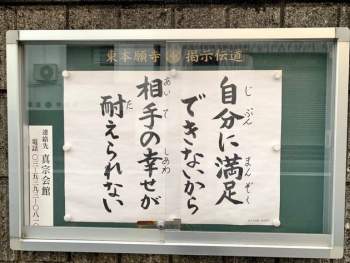 東本願寺 掲示伝道
自分に満足
できないから
相手の幸せが
耐えられない
じ ぶん まん ぞく
あい て しあわ
た
連絡先 真宗会館